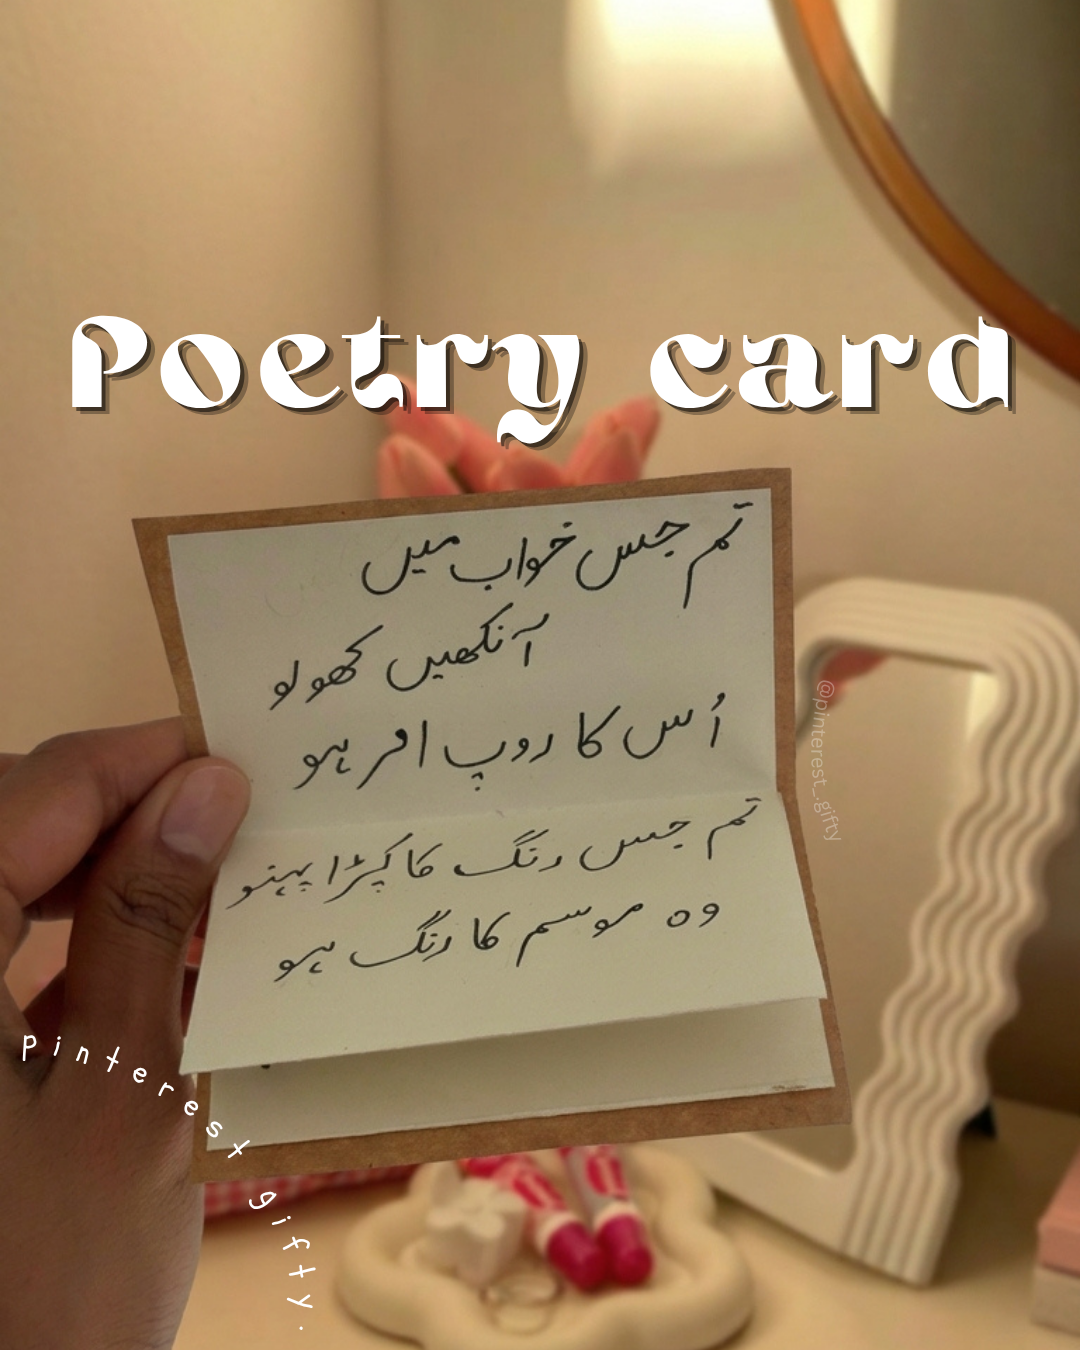 Poetry card
تم جس خواب میں
آنکھیں کھولو
اُس کا روپ امر ہو
تم جس رنگ کا کپڑا پہنو
وہ موسم کا رنگ ہو
@pinterest_.gifty
pinterest gifty.